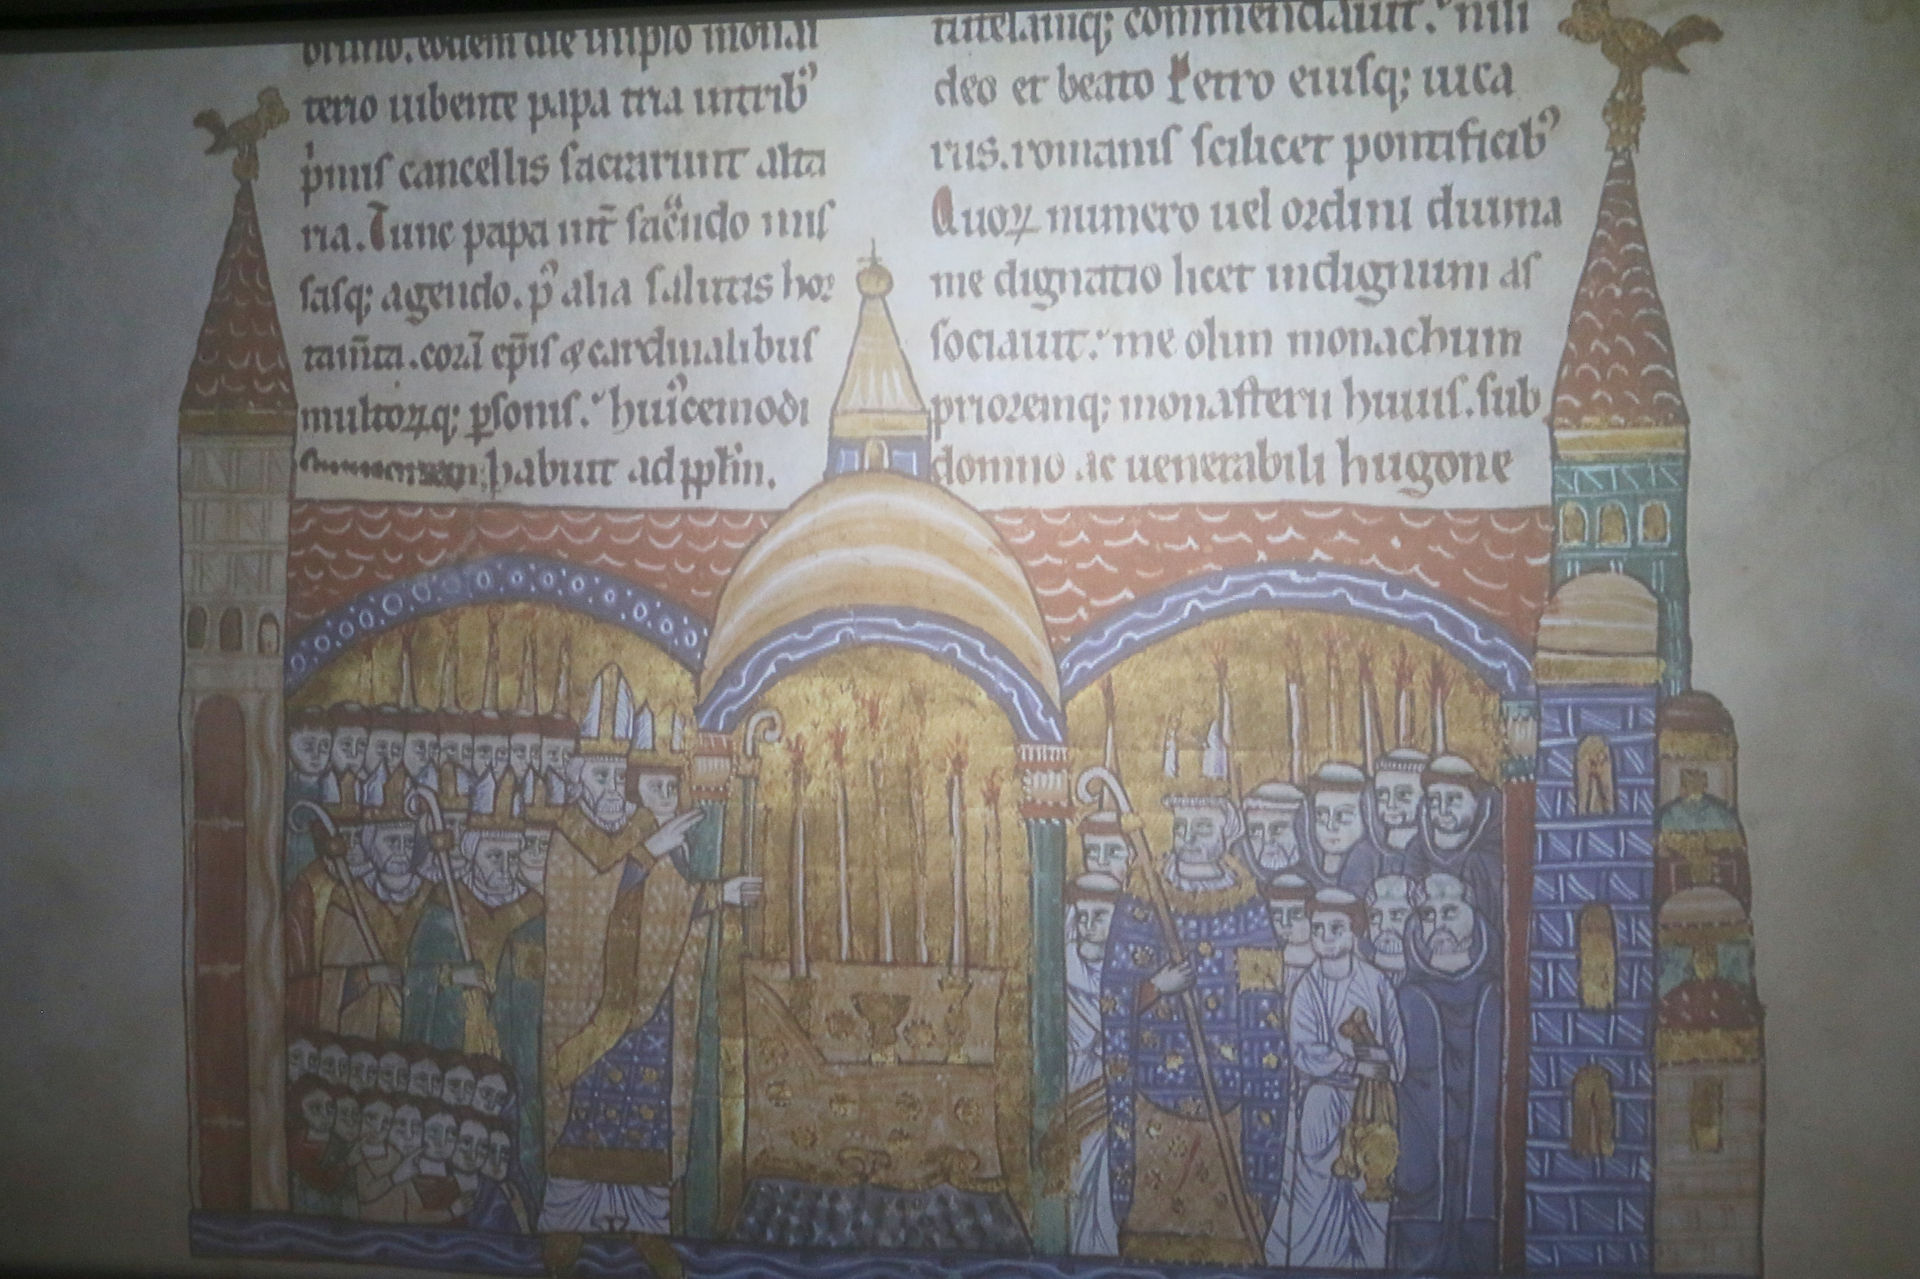 terio iubente papa tria in trib᾿
p̍mis cancellis sacrarunt alta
ria. Tunc papa int̄ sac̄ndo mis
sasq; agendo. p᾿ alia salutis hor
tam̄ta. corā ep̄is & cardinalibus
multorꝝq; ꝑsonis. huic̾emodi
habuit ad pplm̄.
titelamq; commendauit. nisi
deo et beato Petro eiusq; uica
riis. romanis scilicet pontificib᾿
Quoꝝ numero uel ordini diuina
me dignatio licet indignum as
sociauit. me olim monachum
prioremq; monasterii huius. sub
domno ac uenerabili hugone